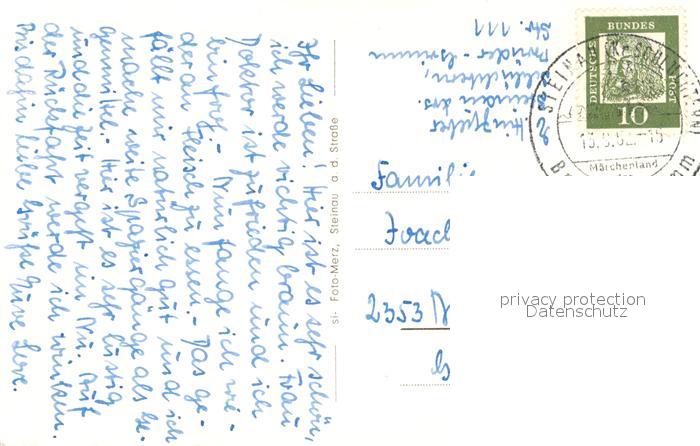 Ihr Lieben! Hier ist es sehr schön,
ich werde richtig braun. Frau
Doktor ist zufrieden und ich
bin froh. - Nun fange ich wie-
der an Fleisch zu essen. - Das ge-
fällt mir natürlich gut und ich
mache weite Spaziergänge als Ge-
genmittel. - Hier ist es sehr lustig
und die Zeit vergeht im Nu. Auf
der Rückfahrt werde ich winken.
Bis dahin liebe Grüße Eure
si- Foto-Merz, Steinau a. d. Straße
Str. 111
DEUTSCHE
BUNDES
POST
10
STEINAU
Märchenland
Famili
Joach
2353 N
privacy protection
Datenschutz